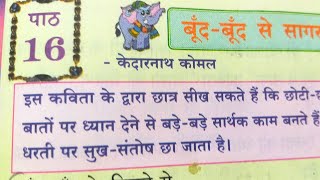 पाठ
16
बूँद-बूँद से
- केदारनाथ कोमल
इस कविता के द्वारा छात्र सीख सकते हैं कि छोटी-
बातों पर ध्यान देने से बड़े-बड़े सार्थक काम बनते हैं
धरती पर सुख-संतोष छा जाता है।